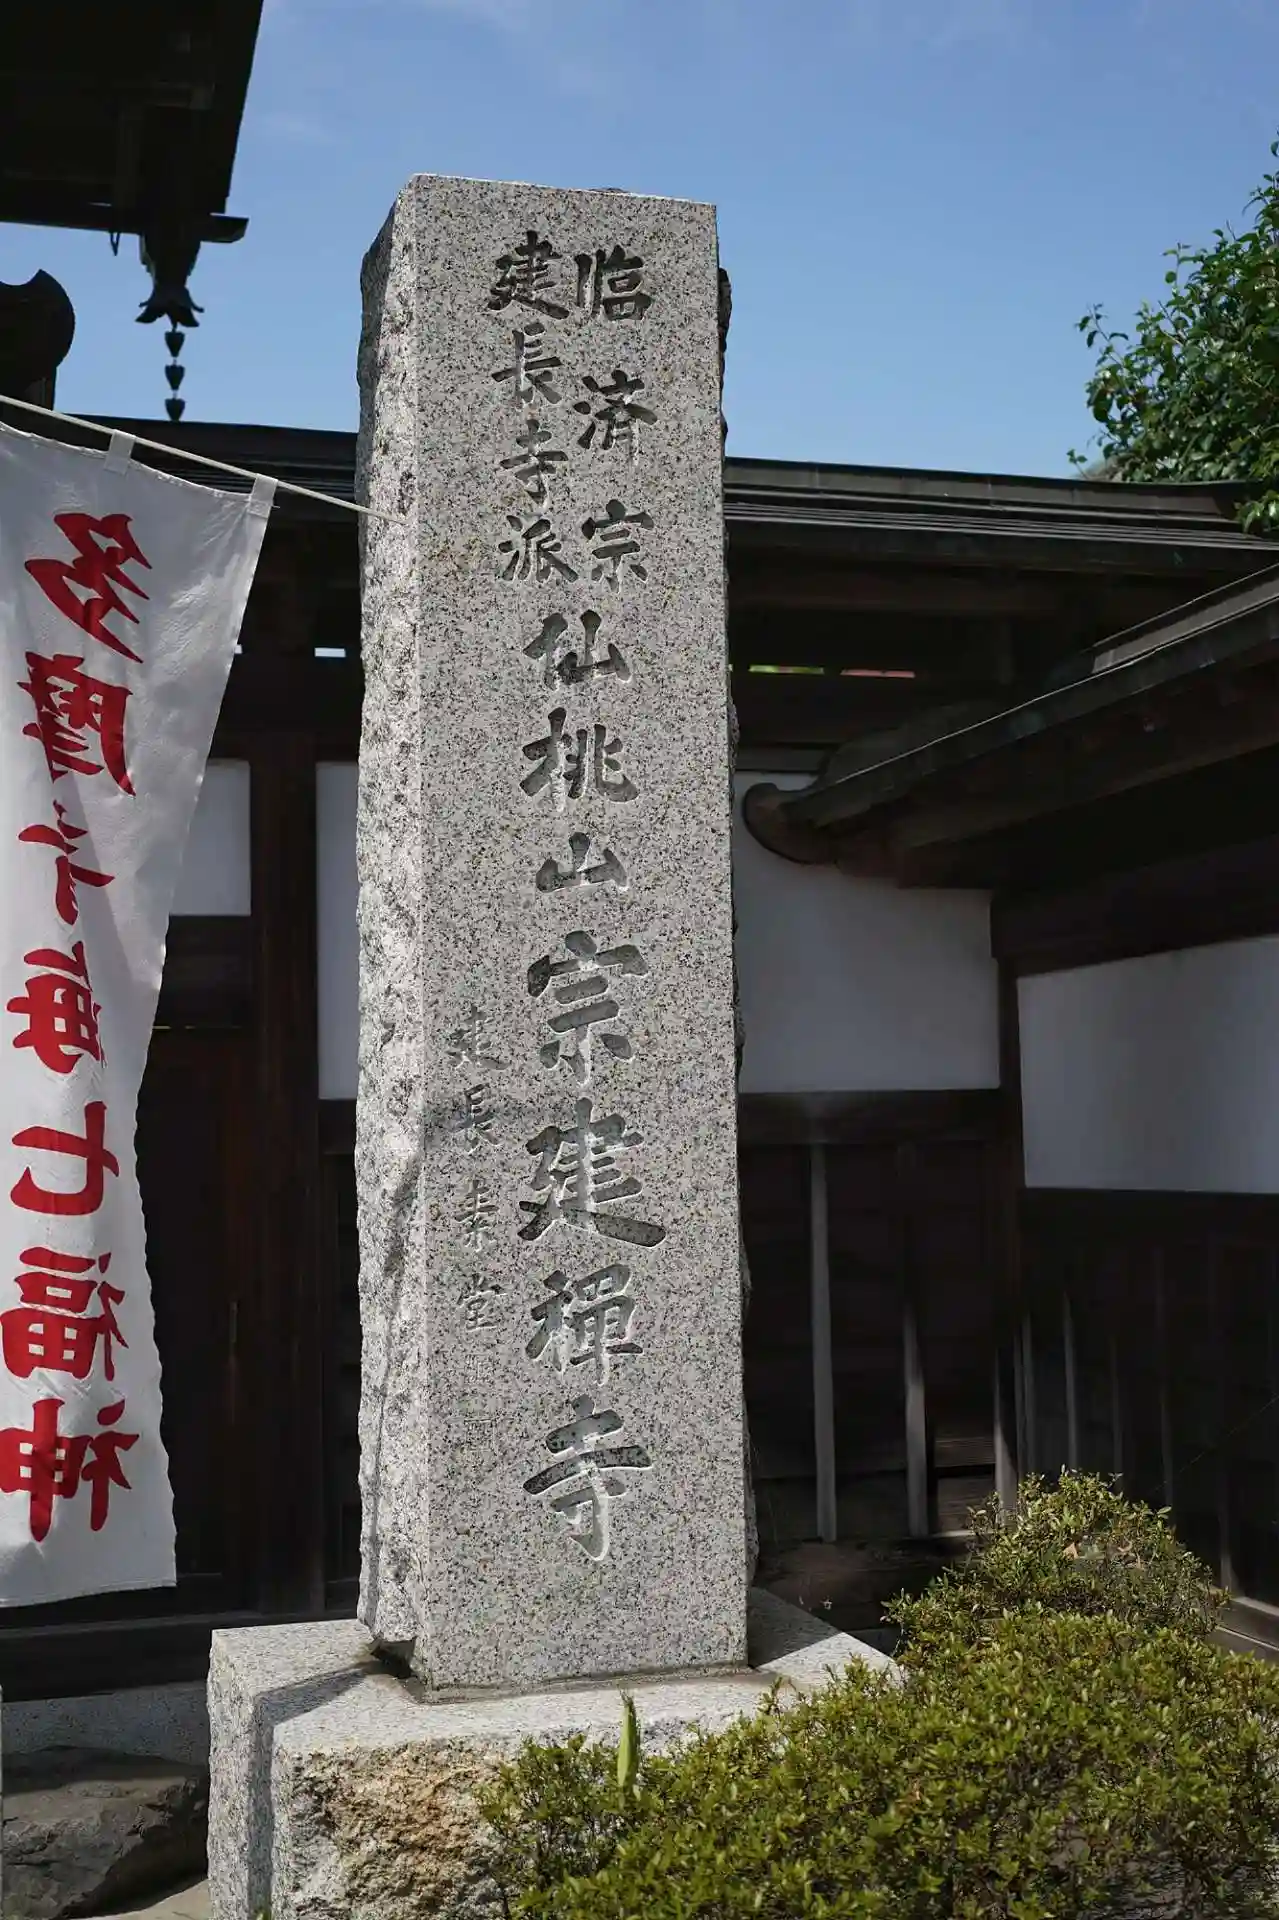 臨済宗
建長寺派
仙桃山宗建禅寺
建長素堂
多摩青梅七福神